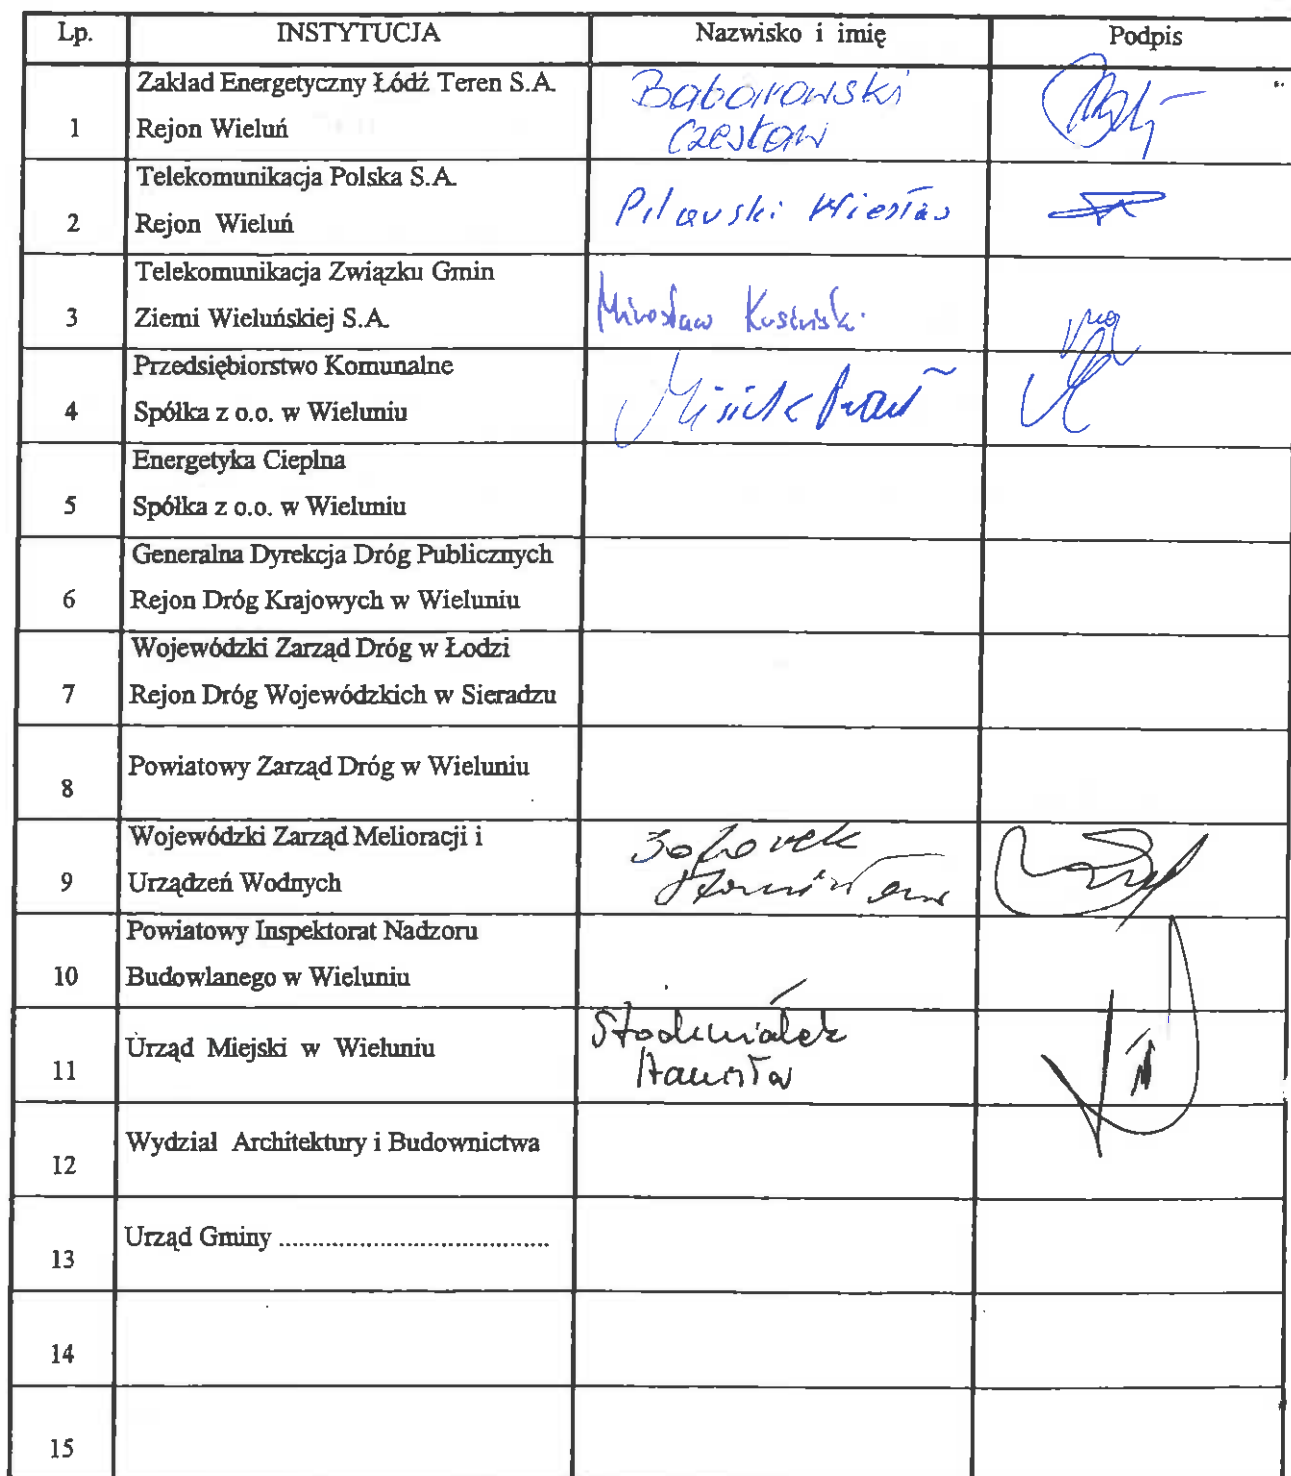 Lp. INSTYTUCJA Nazwisko i imię Podpis
Zakład Energetyczny Łódź Teren S.A. Baborowski
1 Rejon Wieluń Czesław
Telekomunikacja Polska S.A.
2 Rejon Wieluń Pilawski Wiesław
Telekomunikacja Związku Gmin
3 Ziemi Wieluńskiej S.A. Mirosław Kusiński
Przedsiębiorstwo Komunalne
4 Spółka z o.o. w Wieluniu
Energetyka Cieplna
5 Spółka z o.o. w Wieluniu
Generalna Dyrekcja Dróg Publicznych
6 Rejon Dróg Krajowych w Wieluniu
Wojewódzki Zarząd Dróg w Łodzi
7 Rejon Dróg Wojewódzkich w Sieradzu
Powiatowy Zarząd Dróg w Wieluniu
8
Wojewódzki Zarząd Melioracji i
9 Urządzeń Wodnych Stanisław
Powiatowy Inspektorat Nadzoru
10 Budowlanego w Wieluniu
Urząd Miejski w Wieluniu
11 Stanisław
Wydział Architektury i Budownictwa
12
Urząd Gminy .........................................
13
14
15